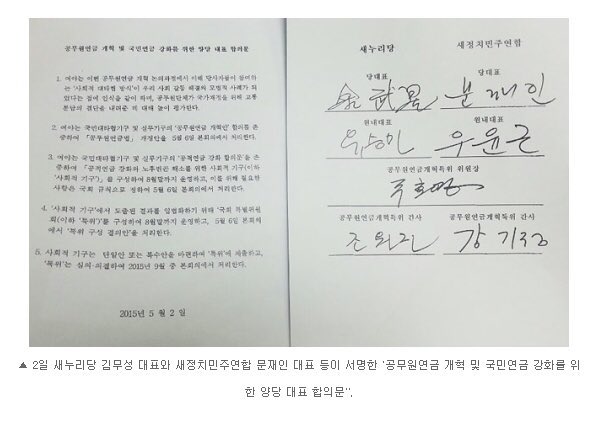 공무원연금 개혁 및 국민연금 강화를 위한 양당 대표 합의문
1. 여야는 이번 공무원연금 개혁 논의과정에서 이해 당사자들이 참여하
는 '사회적 대타협 방식'이 우리 사회 갈등 해결의 모범적 사례가 되
었다는 점에 인식을 같이 하며, 공무원단체가 국가재정을 위해 고통
분담의 결단을 내려준 데 대해 높이 평가한다.
2. 여야는 국민대타협기구 및 실무기구의 '공무원연금개혁' 합의를 존
중하여 「공무원연금법」 개정안을 5월 6일 본회의에서 처리한다.
3. 여야는 국민대타협기구 및 실무기구의 '공적연금 강화 합의문'을 존
중하여 「공적연금 강화와 노후빈곤 해소를 위한 사회적기구(이하
'사회적 기구')」를 구성하여 8월말까지 운영하고, 이를 위해 필요한
사항은 국회 규칙으로 정하여 5월 6일 본회의에서 처리한다.
4. '사회적 기구'에서 도출된 결과를 입법화하기 위해 '국회 특별위원
회(이하 '특위')'를 구성하여 8월말까지 운영하고, 5월 6일 본회의
에서 '특위 구성 결의안'을 처리한다.
5. 사회적 기구는 단일안 또는 복수안을 마련하여 '특위'에 제출하고,
'특위'는 심의·의결하여 2015년 9월 중 본회의에서 처리한다.
2015년 5월 2일
새누리당 새정치민주연합
당대표 당대표
金武星 문재인
원내대표 원내대표
유승민 우윤근
공무원연금개혁특위 위원장
주호영
공무원연금개혁특위 간사 공무원연금개혁특위 간사
조원진 강기정
▲ 2일 새누리당 김무성 대표와 새정치민주연합 문재인 대표 등이 서명한 '공무원연금 개혁 및 국민연금 강화를 위
한 양당 대표 합의문''.